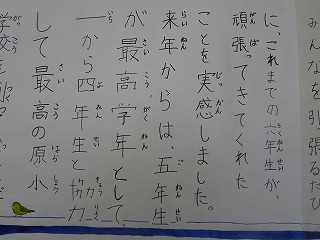 みんなを引っ張るたび
に、これまでの六年生が、
頑張ってきてくれた
ことを実感しました。
来年からは、五年生
が最高学年として、
一から四年生と協力
して最高の原小
学校を